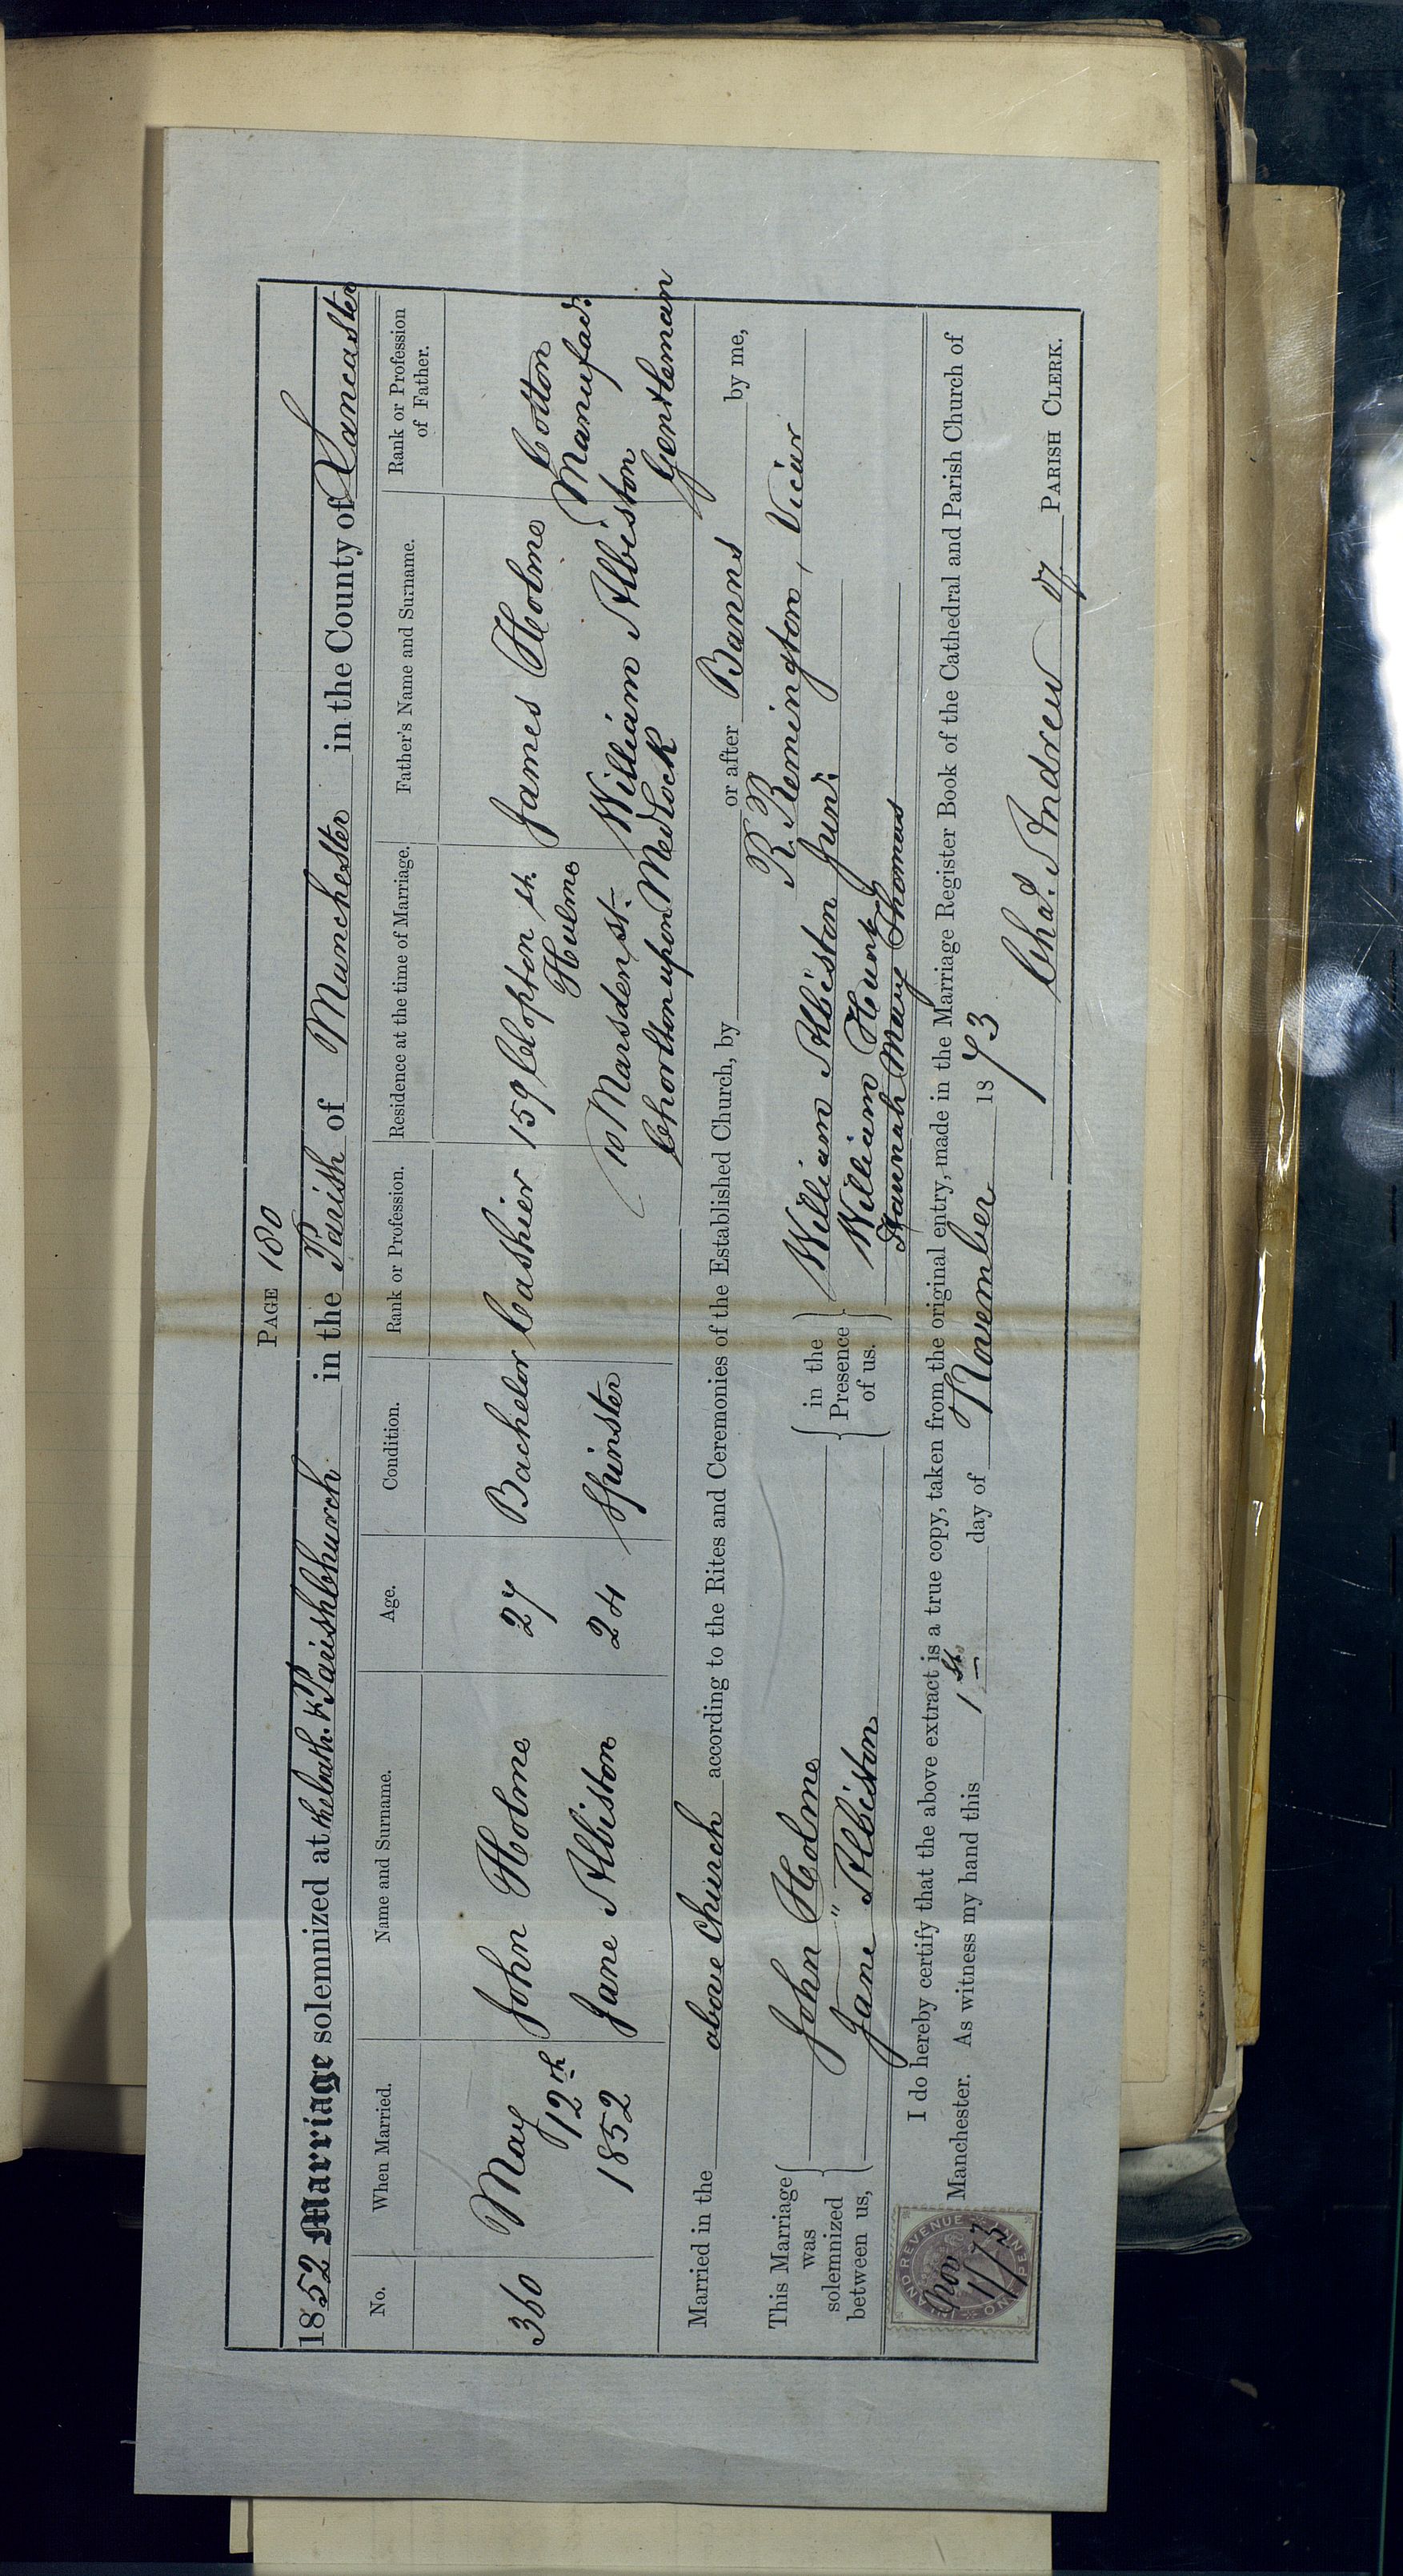 PAGE 180
1852 Marriage solemnized at the Cath. & Parish Church in the Parish of Manchester in the County of Lancaster
No. When Married. Name and Surname. Age. Condition. Rank or Profession. Residence at the time of Marriage. Father's Name and Surname. Rank or Profession of Father.
360 May 12th 1852 John Holme 27 Bachelor Cashier 159 Clopton St. Hulme James Holme Cotton Manufacr.
Jane Albiston 24 Spinster 10 Marsden St. Chorlton upon Medlock William Albiston Gentleman
Married in the above Church according to the Rites and Ceremonies of the Established Church, by or after Banns by me,
R. Remington, Vicar
This Marriage was solemnized between us, John Holme Jane Albiston in the Presence of us. William Albiston Junr. William Hunt Hannah Mary Thomas
I do hereby certify that the above extract is a true copy, taken from the original entry, made in the Marriage Register Book of the Cathedral and Parish Church of
Manchester. As witness my hand this 1st. day of November 1873
Chas. Andrew PARISH CLERK.
INLAND REVENUE ONE PENNY
Nov 1/73